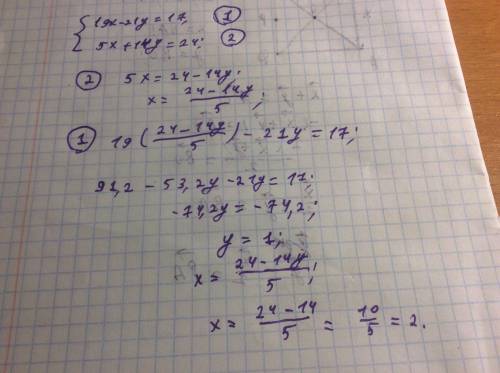 19x-21y=17; ①
5x+14y=24; ②
② 5x=24-14y;
x= (24-14y)/5;
① 19((24-14y)/5)-21y=17;
91,2-53,2y-21y=17;
-74,2y=-74,2;
y=1;
x= (24-14y)/5;
x= (24-14)/5 = 10/5 = 2.